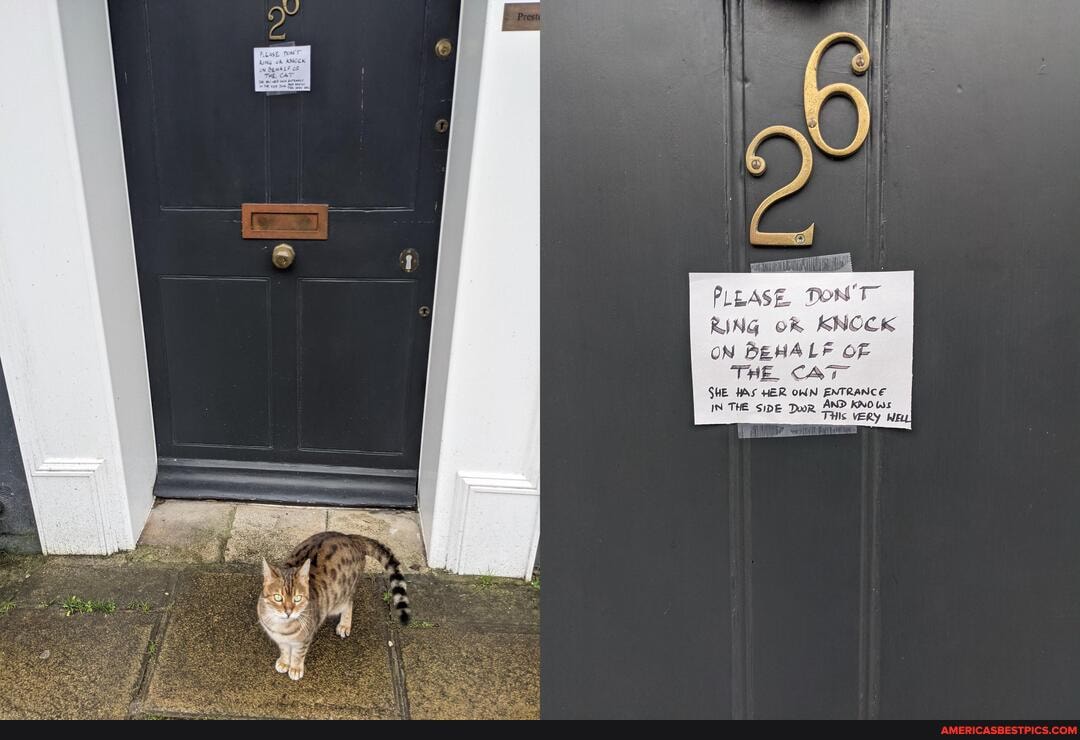 26
PLEASE DON'T
RING OR KNOCK
ON BEHALF OF
THE CAT
SHE HAS HER OWN ENTRANCE
IN THE SIDE DOOR AND KNOWS
THIS VERY WELL
Prest
26
PLEASE DON'T
RING OR KNOCK
ON BEHALF OF
THE CAT
SHE HAS HER OWN ENTRANCE
IN THE SIDE DOOR AND KNOWS
THIS VERY WELL
AMERICASBESTPICS.COM